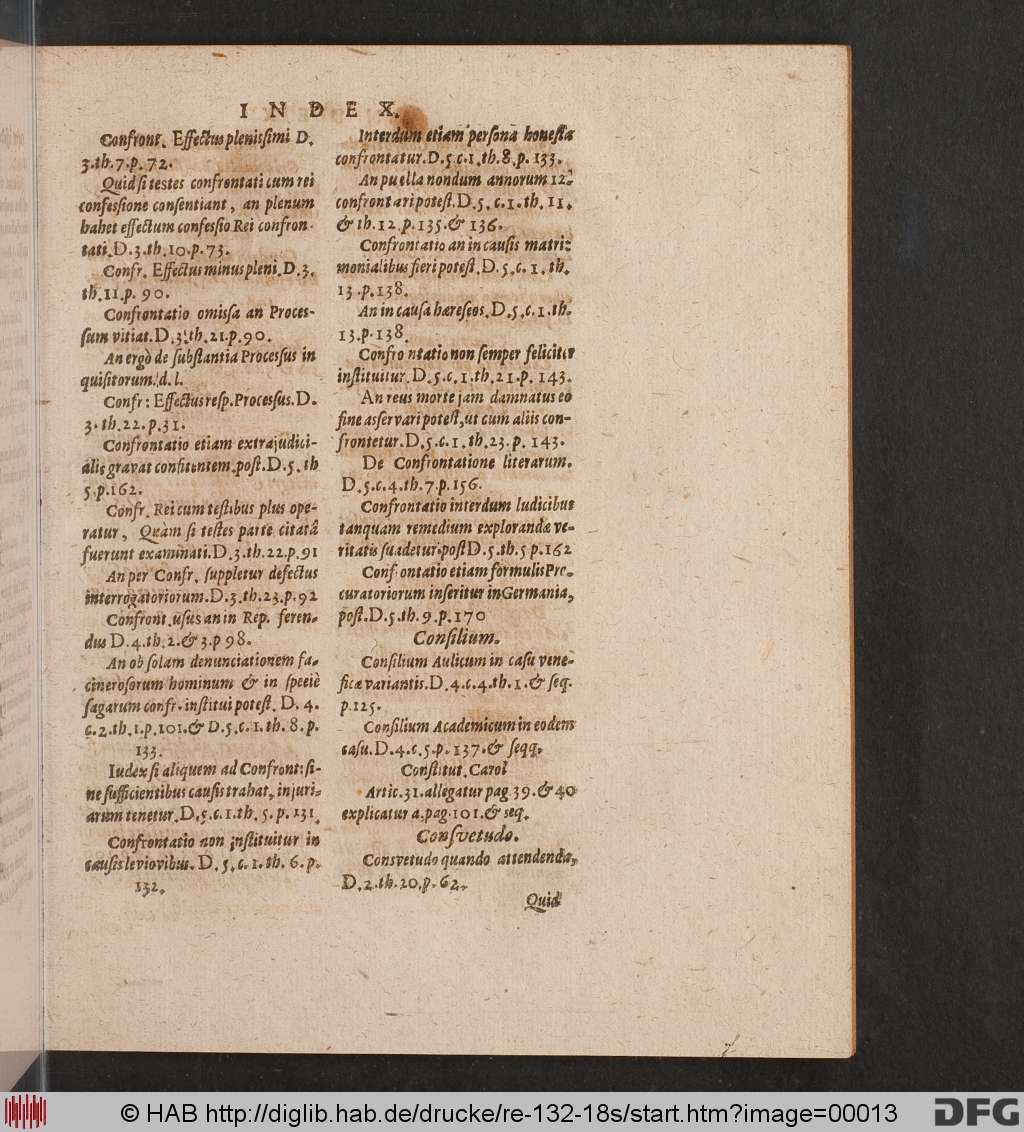 INDEX.
Confront. Effectus plenissimi D.
3.th.7.p.72.
Quid si testes confrontati cum rei
confessione consentiant, an plenum
habet effectum confessio Rei confron-
tati.D.3.th.10.p.73.
Confr. Effectus minus pleni.D.3.
th.11.p. 90.
Confrontatio omissa an Proces-
sum vitiat.D.3.th.21.p.90.
An ergò de substantia Processus in
quisitorum. d.l.
Confr: Effectus resp.Processus.D.
3.th.22.p.31.
Confrontatio etiam extrajudici-
alis gravat confitentem.post.D.5.th
5.p.162.
Confr. Rei cum testibus plus ope-
ratur, Quàm si testes parte citatâ
fuerunt examinati.D.3.th.22.p.91
An per Confr. suppletur defectus
interrogatoriorum.D.3.th.23.p.92
Confront.usus an in Rep. feren-
dus D.4.th.2.& 3.p 98.
An ob solam denunciationem fa-
cinerosorum hominum & in specie
sagarum confr.institui potest. D.4.
c.2.th.1.p.101.& D.5.c.1.th.8.p.
133.
Iudex si aliquem ad Confront:si-
ne sufficientibus causis trahat, injuri-
arum tenetur.D.5.c.1.th.5.p.131.
Confrontatio non instituitur in
causis leviovibus.D.5.c.1.th.6.p.
132.
Interdum etiam personæ honestæ
confrontatur.D.5.c.1.th.8.p.133.
An puella nondum annorum 12.
confrontari potest.D.5.c.1.th.11.
& th.12.p.135.& 136.
Confrontatio an in causis matri-
monialibus fieri potest.D.5.c.1.th.
13.p.138.
An in causa hæreseos.D.5.c.1.th.
13.p.138
Confrontatio non semper feliciter
instituitur.D.5.c.1.th.21.p.143.
An reus morte jam damnatus eo
fine asservari potest,ut cum aliis con-
frontetur.D.5.c.1.th.23.p.143.
De Confrontatione literarum.
D.5.c.4.th.7.p.156.
Confrontatio interdum Iudicibus
tanquam remedium explorandæ ve-
ritatis suadetur.post D.5.th.5 p.162
Confrontatio etiam formulis Pro-
curatoriorum inseritur in Germania,
post.D.5.th.9.p.170
Consilium.
Consilium Aulicum in casu vene-
ficæ variantis.D.4.c.4.th.1.& seq.
p.125.
Consilium Academicum in eodem
casu.D.4.c.5.p.137.& seqq.
Constitut.Carol
Artic.31.allegatur pag 39.& 40
explicatur a.pag.101.& seq.
Consvetudo.
Consvetudo quando attendenda,
D.2.th.20.p.62.
Quid
© HAB http://diglib.hab.de/drucke/re-132-18s/start.htm?image=00013
DFG